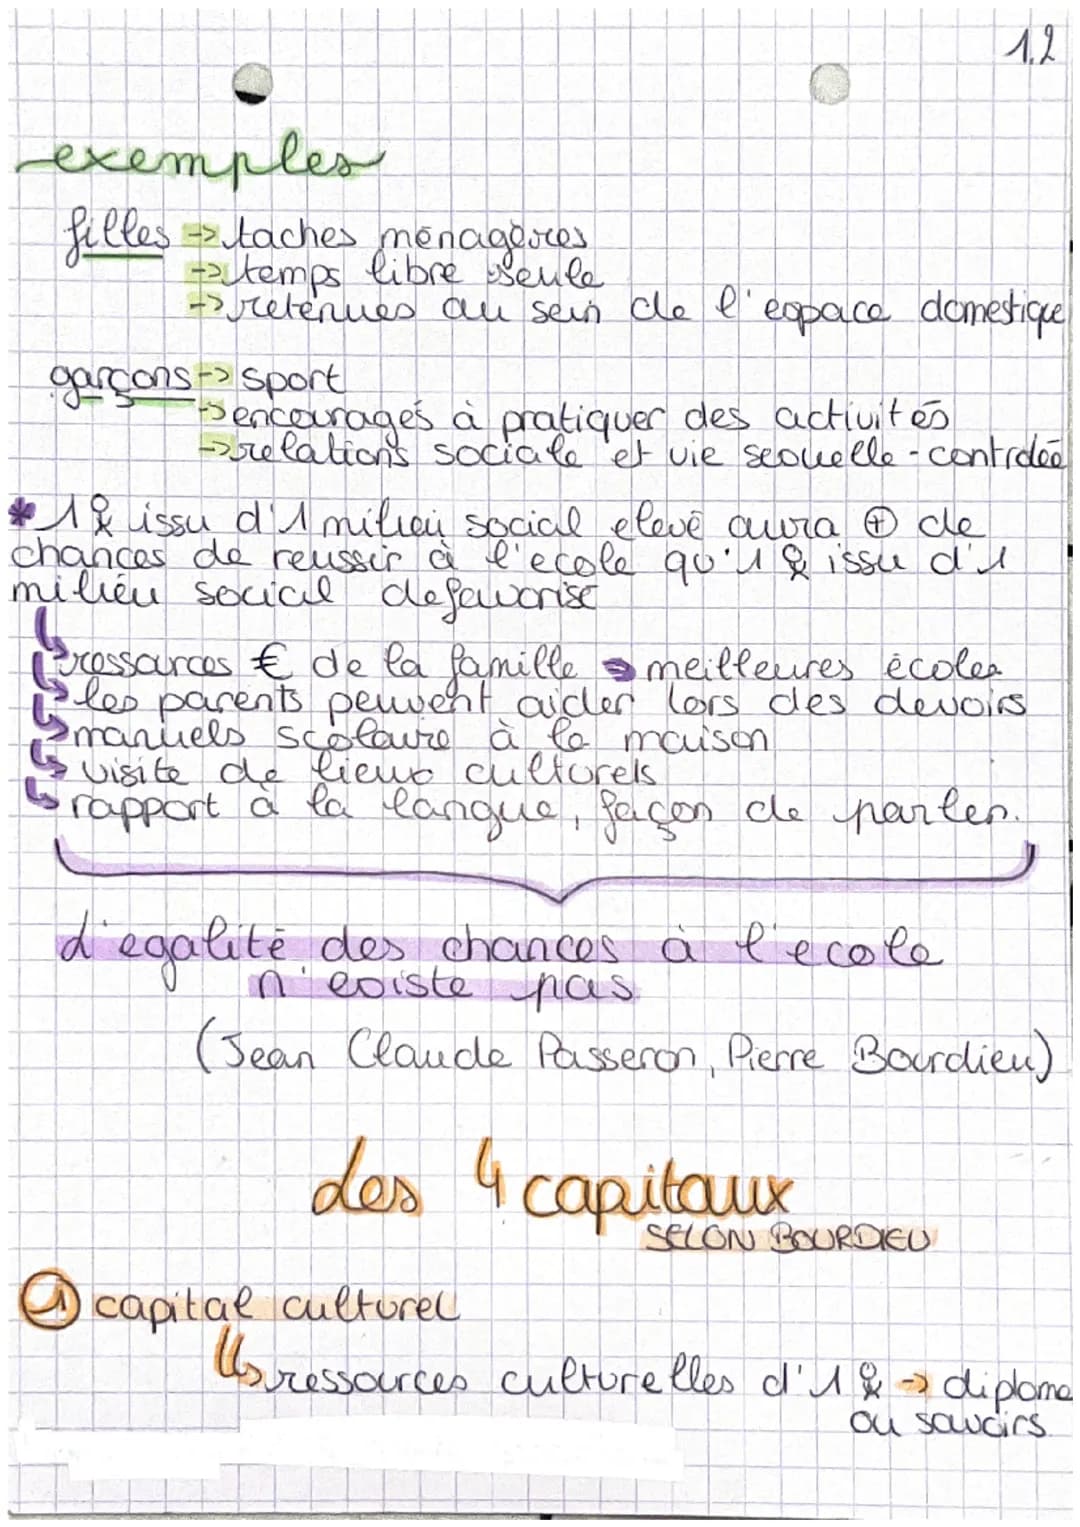 1.2
exemples
filles -> taches ménagères
-> temps libre seule
-> retenues au sein de l'espace domestique
garçons -> sport
-> encouragés à pratiquer des activités
-> relations sociale et vie sexuelle - contrôlée
* 1 issu d'1 milieu social elevé aura ⊕ de
chances de reussir à l'ecole qu'1 issu d'1
milieu social defavorisé
↳ ressources € de la famille → meilleures écoles
↳ les parents peuvent aider lors des devoirs
↳ manuels scolaire à la maison
↳ visite de lieux culturels
↳ rapport à la langue, façon de parler.
L'egalité des chances à l'ecole
n'existe pas
(Jean Claude Passeron, Pierre Bourdieu)
Les 4 capitaux
SELON BOURDIEU
① capital culturel
↳ ressources culturelles d'1 -> diplome
ou savoirs